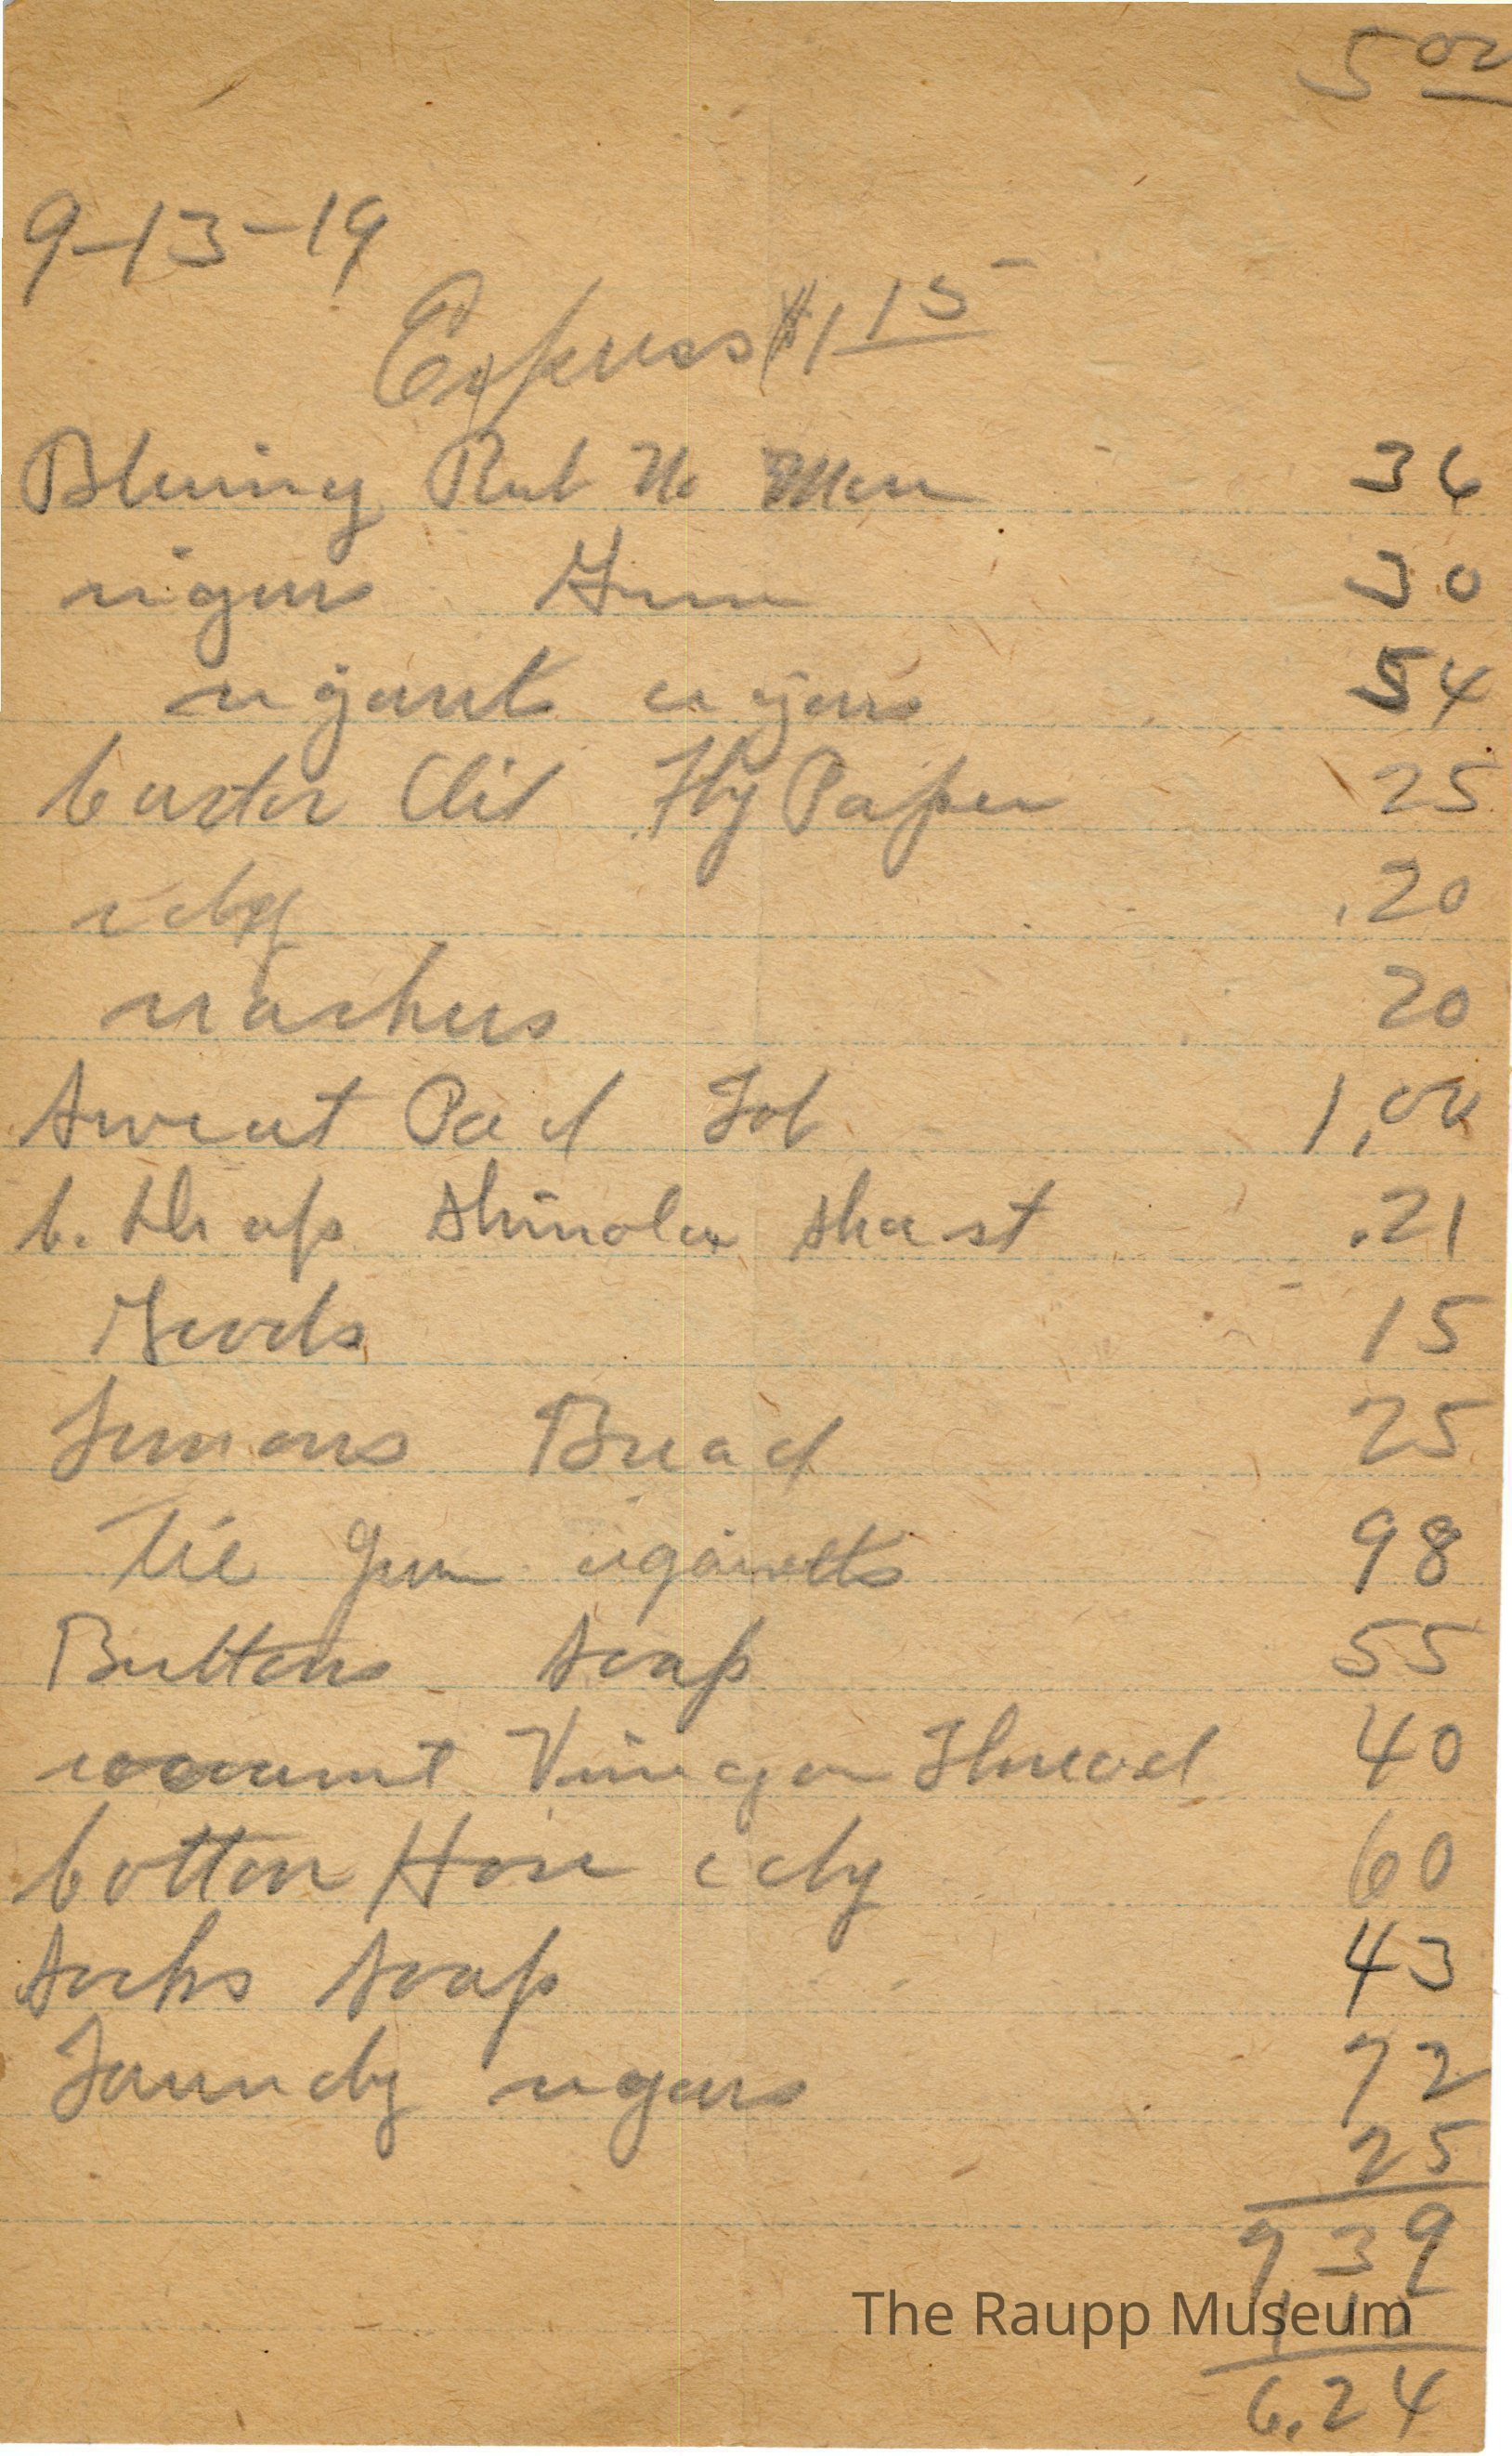 5 00
9-13-19
Express $1 15
Bluing Rub No More 36
cigars Gum 30
cigarets cigars 54
Castor Oil Fly Paper 25
cdy .20
crackers 20
Sweat Pad Tob 1,00
Shinola 21
Goods 15
Lemons Bread 25
Tie Gum cigaretts 98
Buttons Soap 55
cocoanut Vinegar Thread 40
Cotton Hose cdy 60
Socks Soap 43
Laundry cigars 72
25
7 39
The Raupp Museum
6.24